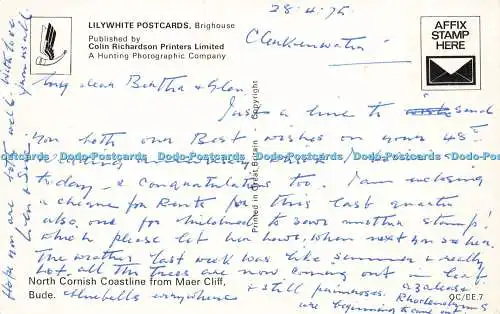 LILYWHITE POSTCARDS, Brighouse
Published by
Colin Richardson Printers Limited
A Hunting Photographic Company
28.4.75.
AFFIX
STAMP
HERE
My dear Bertha & Glen.
Just a line to send
You both our Best wishes on your 45th
today, & Congratulations too. I am enclosing
a cheque for Rent for this last quarter
also one for
which please let her have, when next you see her.
The weather last week was like summer & really
hot. all the trees are now coming out in leaf
Bluebells everywhere & still primroses. azaleas &
Rhododendrons
are beginning to come out.
Hope you are both well. With love
from us all.
Printed in Great Britain - Copyright
North Cornish Coastline from Maer Cliff,
Bude.
OC/EE.7
Dodo-Postcards Dodo-Postcards Dodo-Postcards Dodo-Postcards Dodo-Postcards